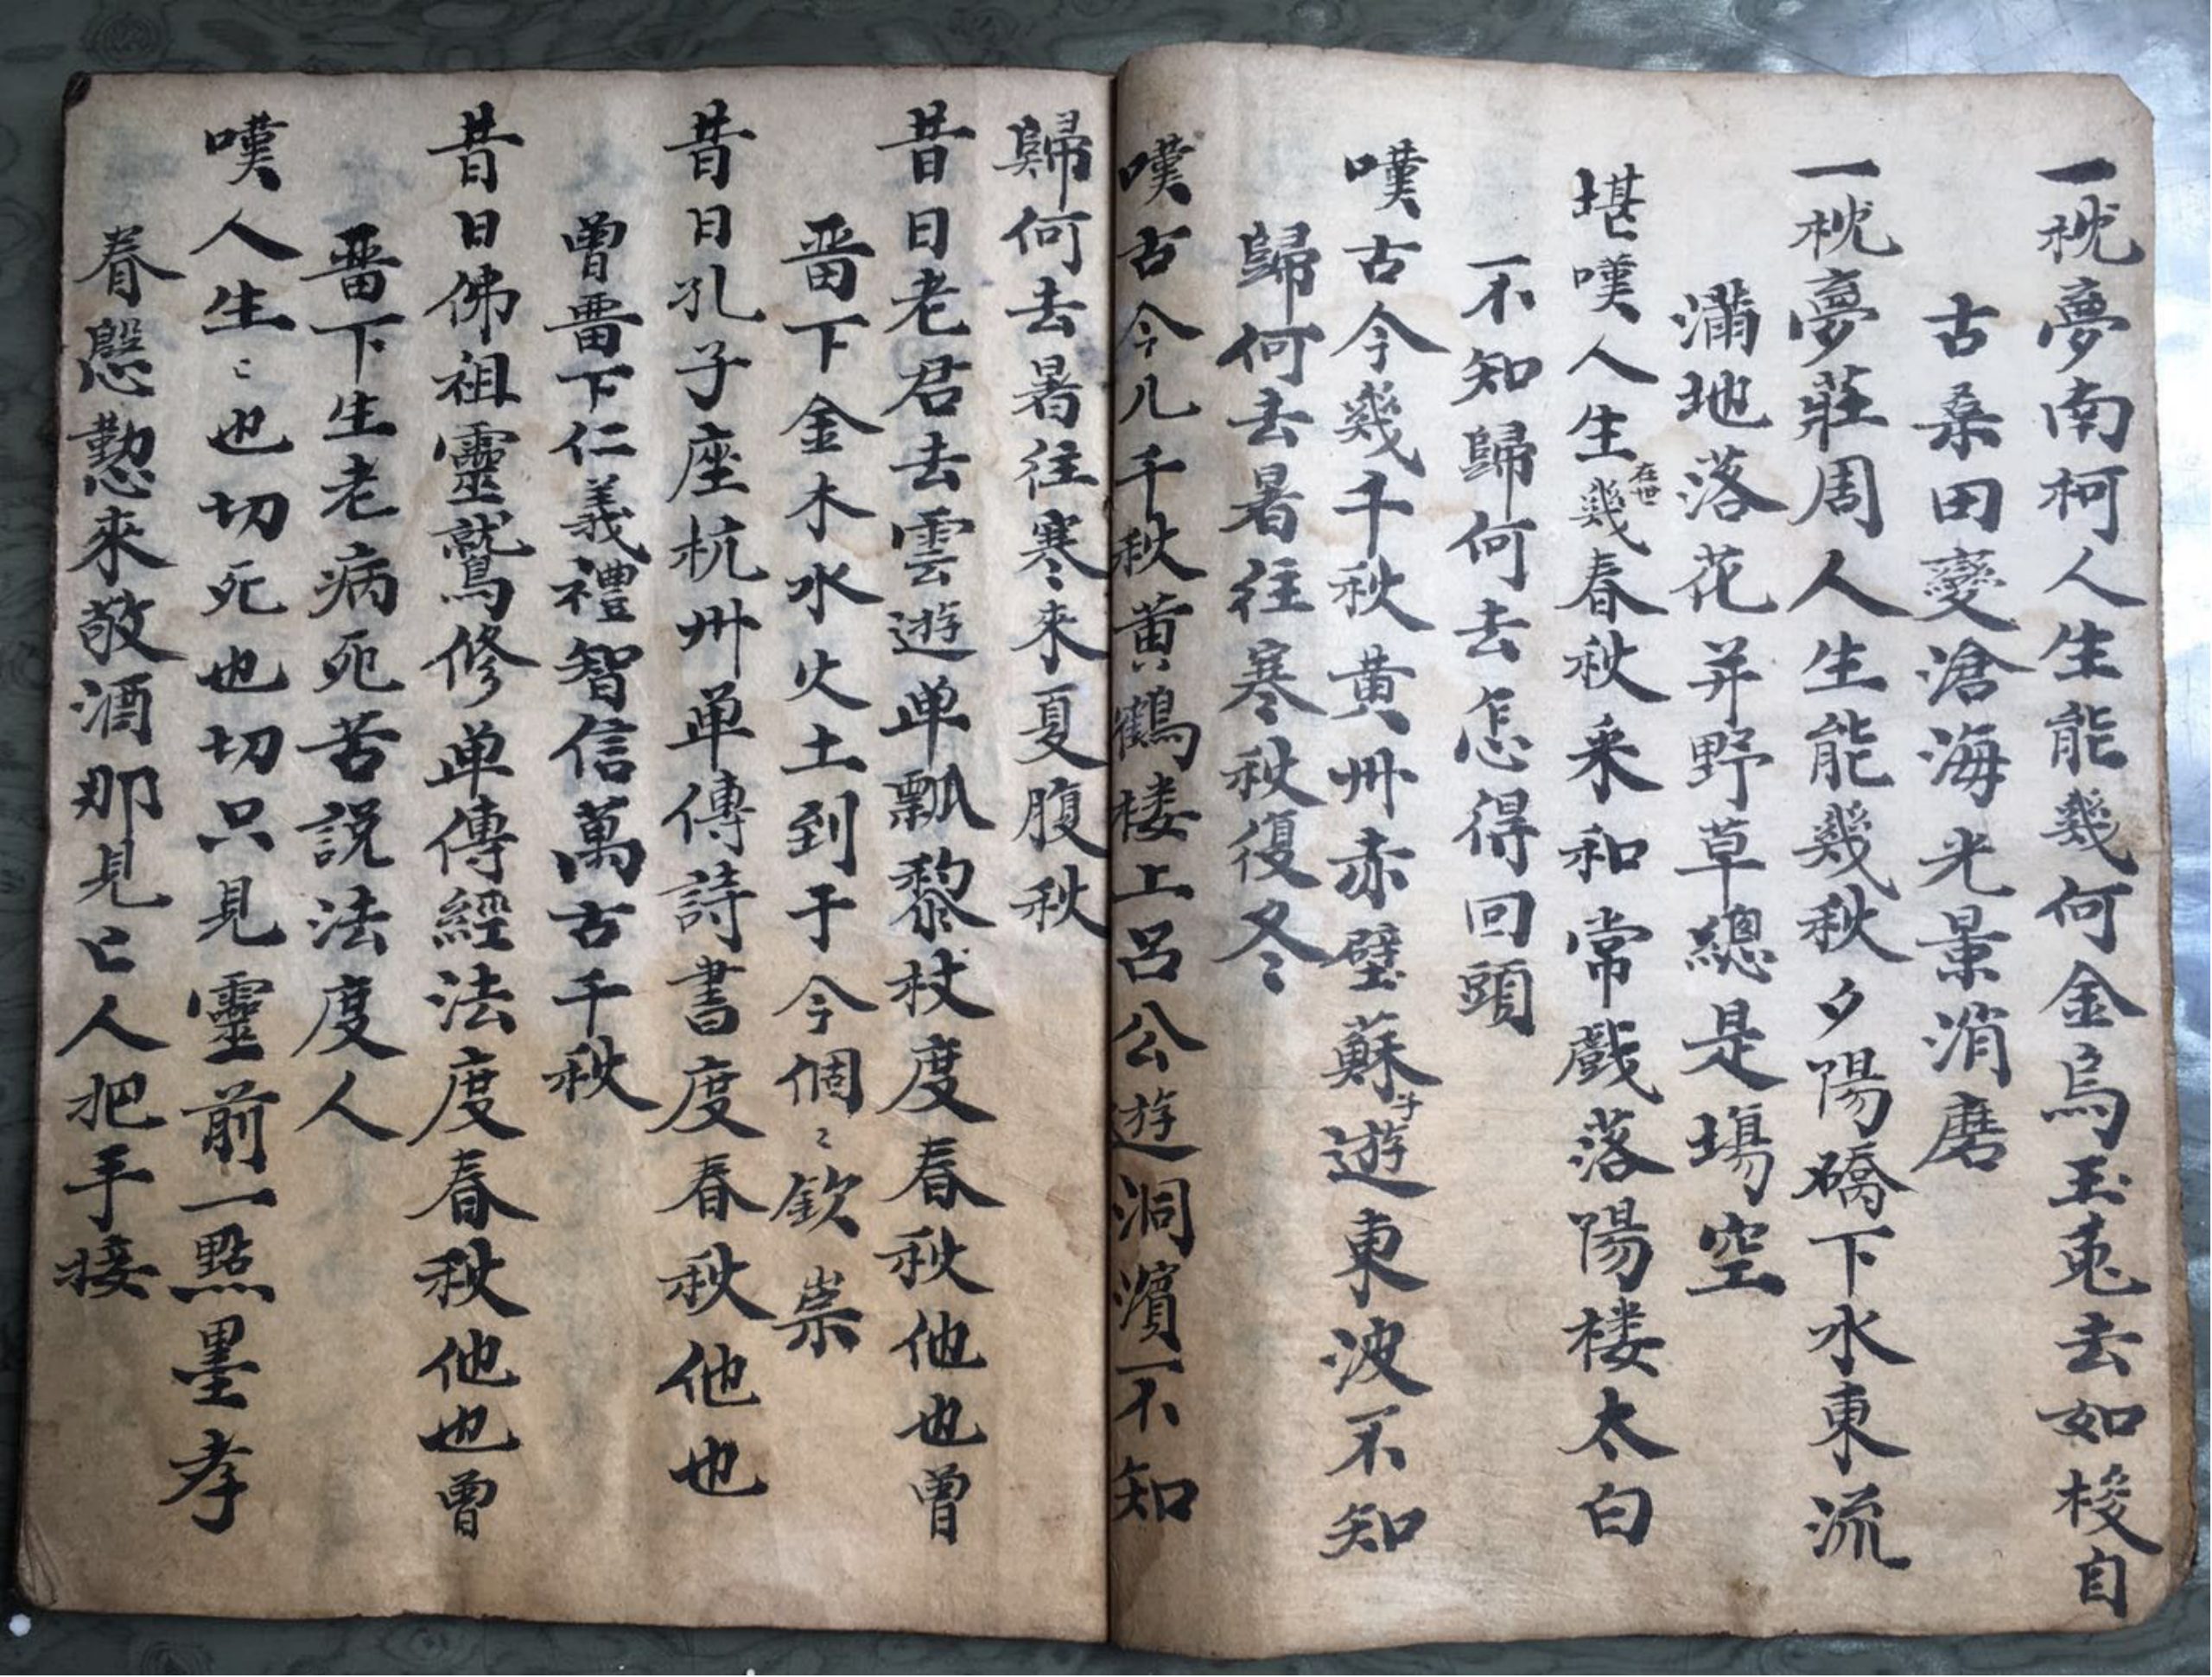 一枕夢南柯人生能幾何金烏玉兎去如梭自
古桑田變滄海光景消磨
一枕夢莊周人生能幾秋夕陽礄下水東流
滿地落花并野草總是塲空
堪嘆人生在世幾春秋采和常戲落陽楼太白
不知歸何去怎得回頭
嘆古今幾千秋黄州赤壁蘇子遊東波不知
歸何去暑往寒秋復冬
嘆古今几千秋黄鶴楼上呂公遊洞濱不知
歸何去暑往寒來夏腹秋
昔日老君去雲遊单瓢黎杖度春秋他也曾
畱下金木水火土到于今個〻欽崇
昔日孔子座杭州单傳詩書度春秋他也
曾畱下仁義禮智信萬古千秋
昔日佛祖靈鷲修单傳經法度春秋他也曾
畱下生老病死苦説法度人
嘆人生〻也切死也切只見靈前一點墨孝
眷慇懃來敬酒那見亡人把手接